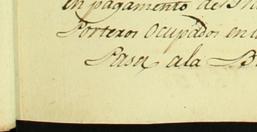 en pagamento de
Porteros Ocupados en
Pasa a la